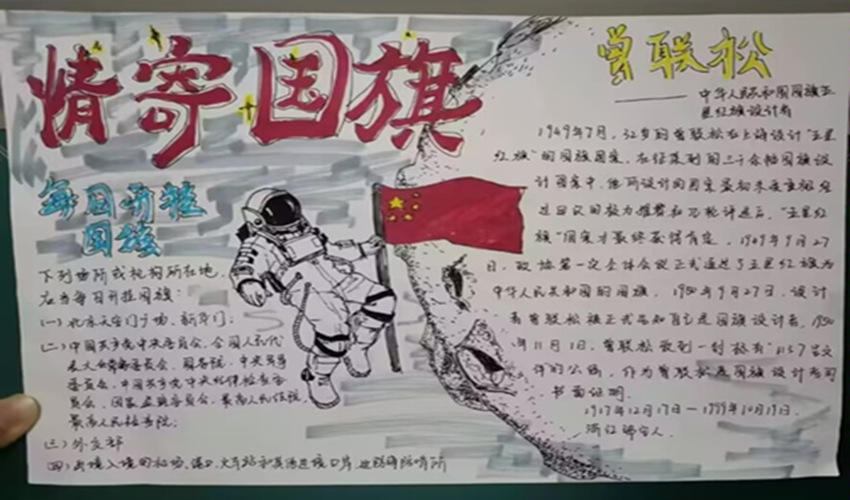 情寄国旗
每日升挂
国旗
下列场所或机构所在地,
应当每日升挂国旗:
(一)北京天安门广场、新华门;
(二)中国共产党中央委员会,全国人民代
表大会常务委员会,国务院,中央军事
委员会,中国共产党中央纪律检查委
员会、国家监察委员会,最高人民法院,
最高人民检察院;
(三)外交部
(四)出境入境的机场、港口、火车站和其他边境口岸,边防海防哨所
曾联松
——中华人民共和国国旗五
星红旗设计者
1949年7月,32岁的曾联松在上海设计"五星
红旗"的国旗图案,在征集到的三千余幅国旗设
计图案中,他所设计的图案最初未被重视,经
过田汉的极力推荐和
"五星红
旗"图案才最终获得肯定,1949年9月27
日,政协第一次全体会议正式通过了五星红旗为
中华人民共和国的国旗,1950年9月27日,设计
者曾联松被正式告知自己是国旗设计者,1950
年11月1日,曾联松收到一封标有"1157号文
件的公函,作为曾联松是国旗设计者的
书面证明.
1917年12月17日—1999年10月19日.
浙江瑞安人.